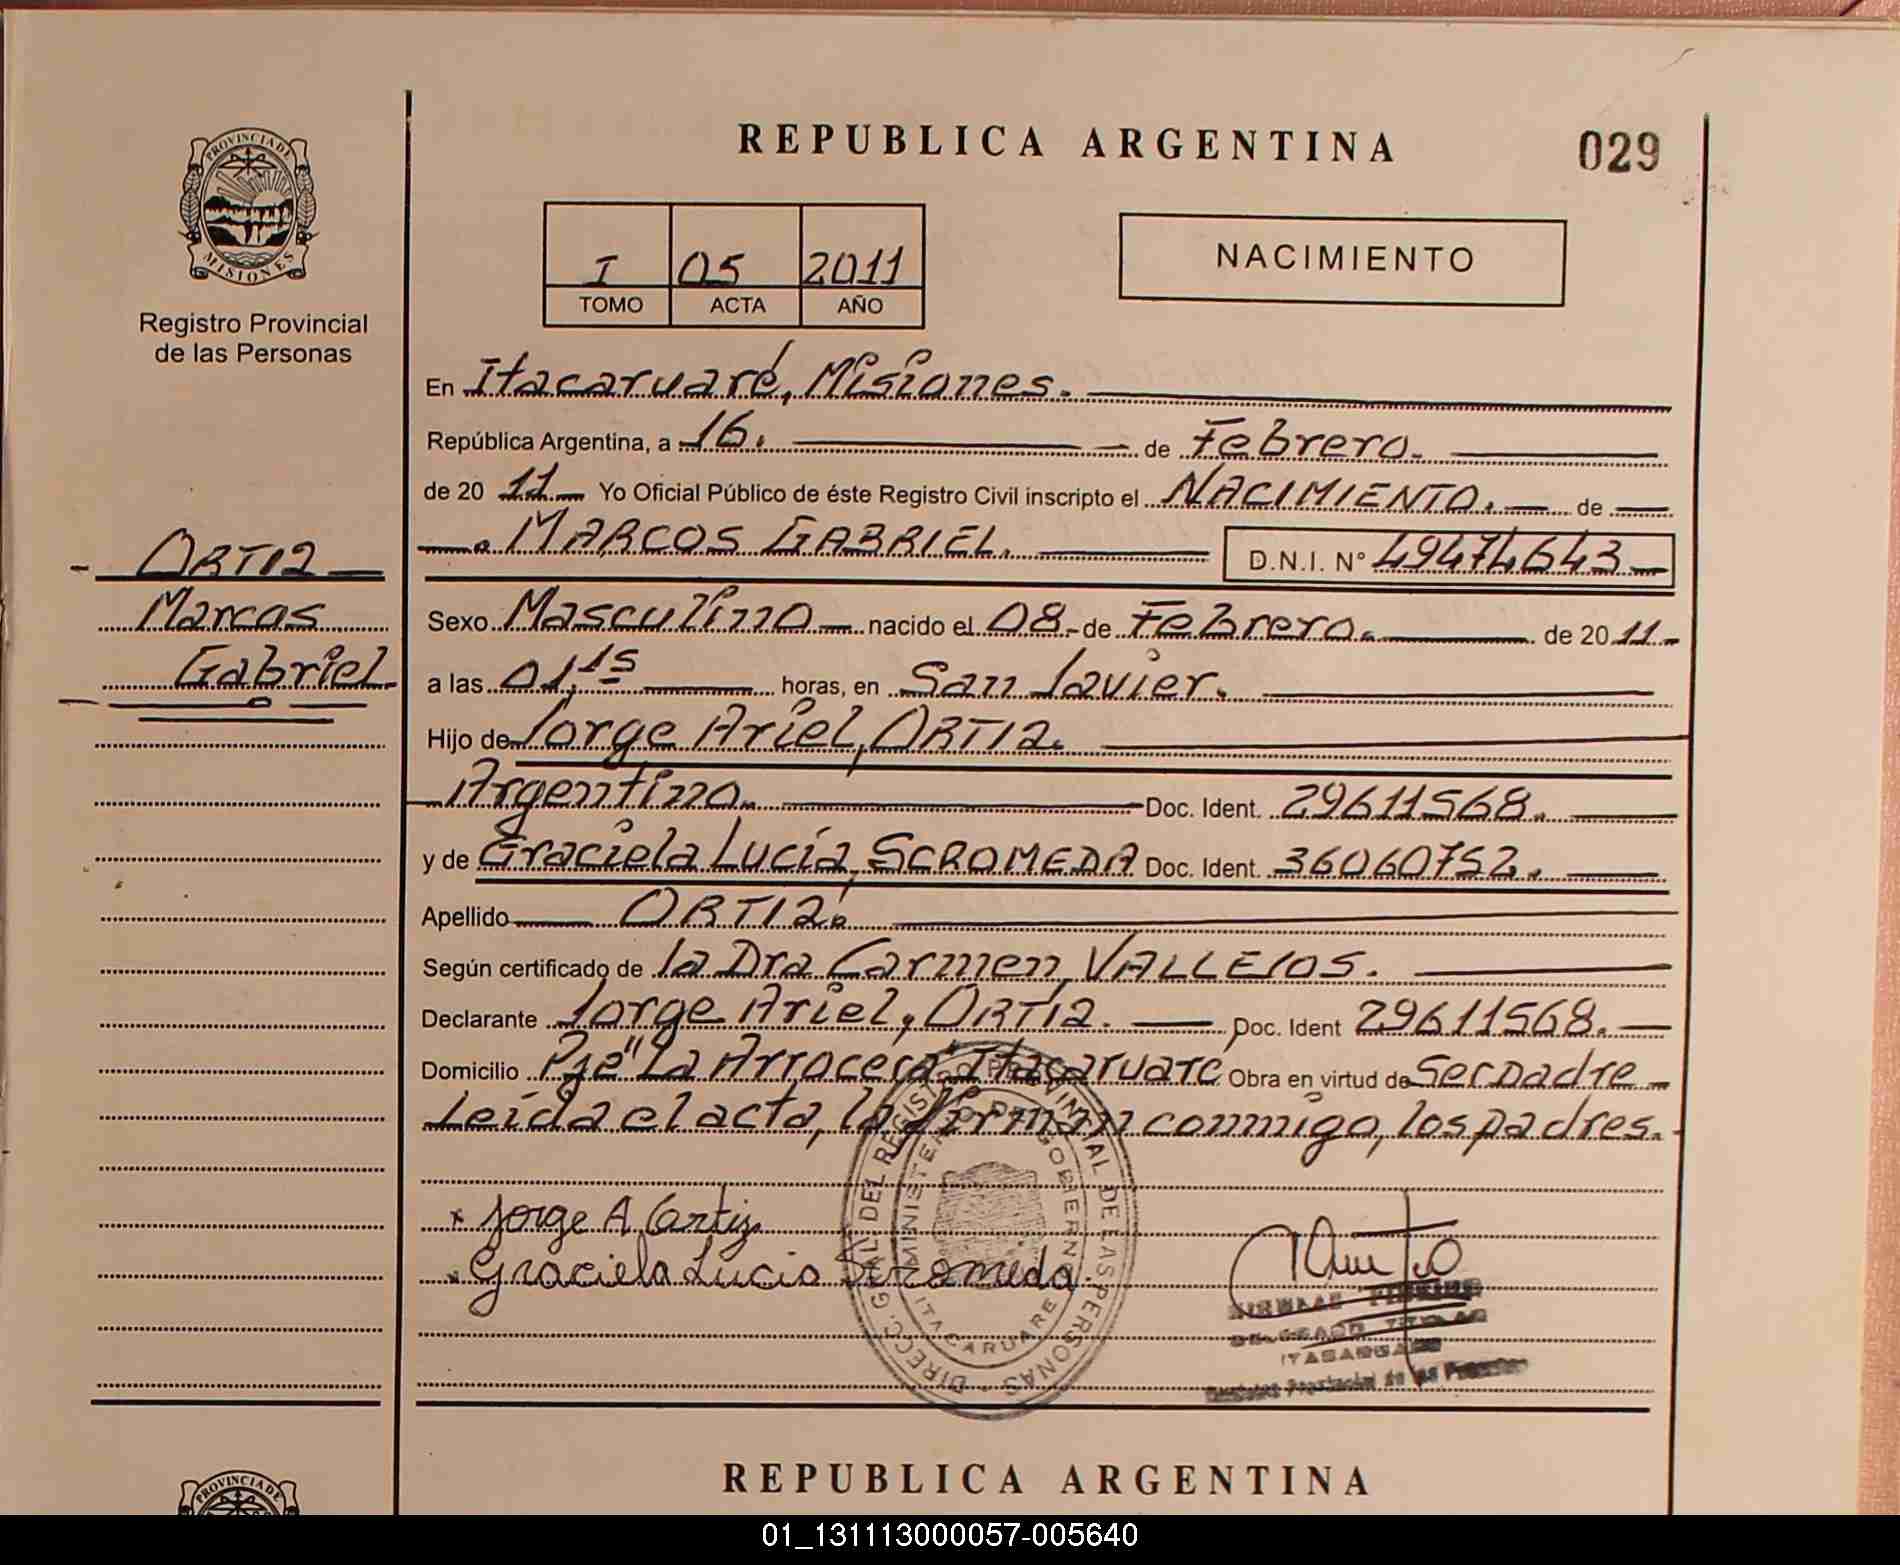 REPUBLICA ARGENTINA
029
PROVINCIA DE
MISIONES
Registro Provincial
de las Personas
I 05 2011
TOMO ACTA AÑO
NACIMIENTO
En Itacaruaré, Misiones.
República Argentina, a 16. de Febrero.
de 20 11 Yo Oficial Público de éste Registro Civil inscripto el NACIMIENTO. de
MARCOS GABRIEL. D.N.I. N° 49474643
ORTIZ
Marcos
Gabriel
Sexo Masculino nacido el 08 de Febrero. de 20 11
a las 01,15 horas, en San Javier.
Hijo de Jorge Ariel, ORTIZ.
Argentino. Doc. Ident. 29611568.
y de Graciela Lucía, SCROMEDA Doc. Ident. 36060752.
Apellido ORTIZ.
Según certificado de la Dra Carmen, VALLEJOS.
Declarante Jorge Ariel, ORTIZ. Doc. Ident 29611568.
Domicilio Pje "La Arrocera" Itacaruaré Obra en virtud de Ser padre
Leída el acta, la firman conmigo, los padres.
Jorge A Ortiz
Graciela Lucia Scromeda.
DIRECC. GRAL DEL REGISTRO PROVINCIAL DE LAS PERSONAS
MINISTERIO DE GOBIERNO
ITACARUARE
DELEGADO TITULAR
Provincial de las Personas
PROVINCIA DE
REPUBLICA ARGENTINA
01_131113000057-005640